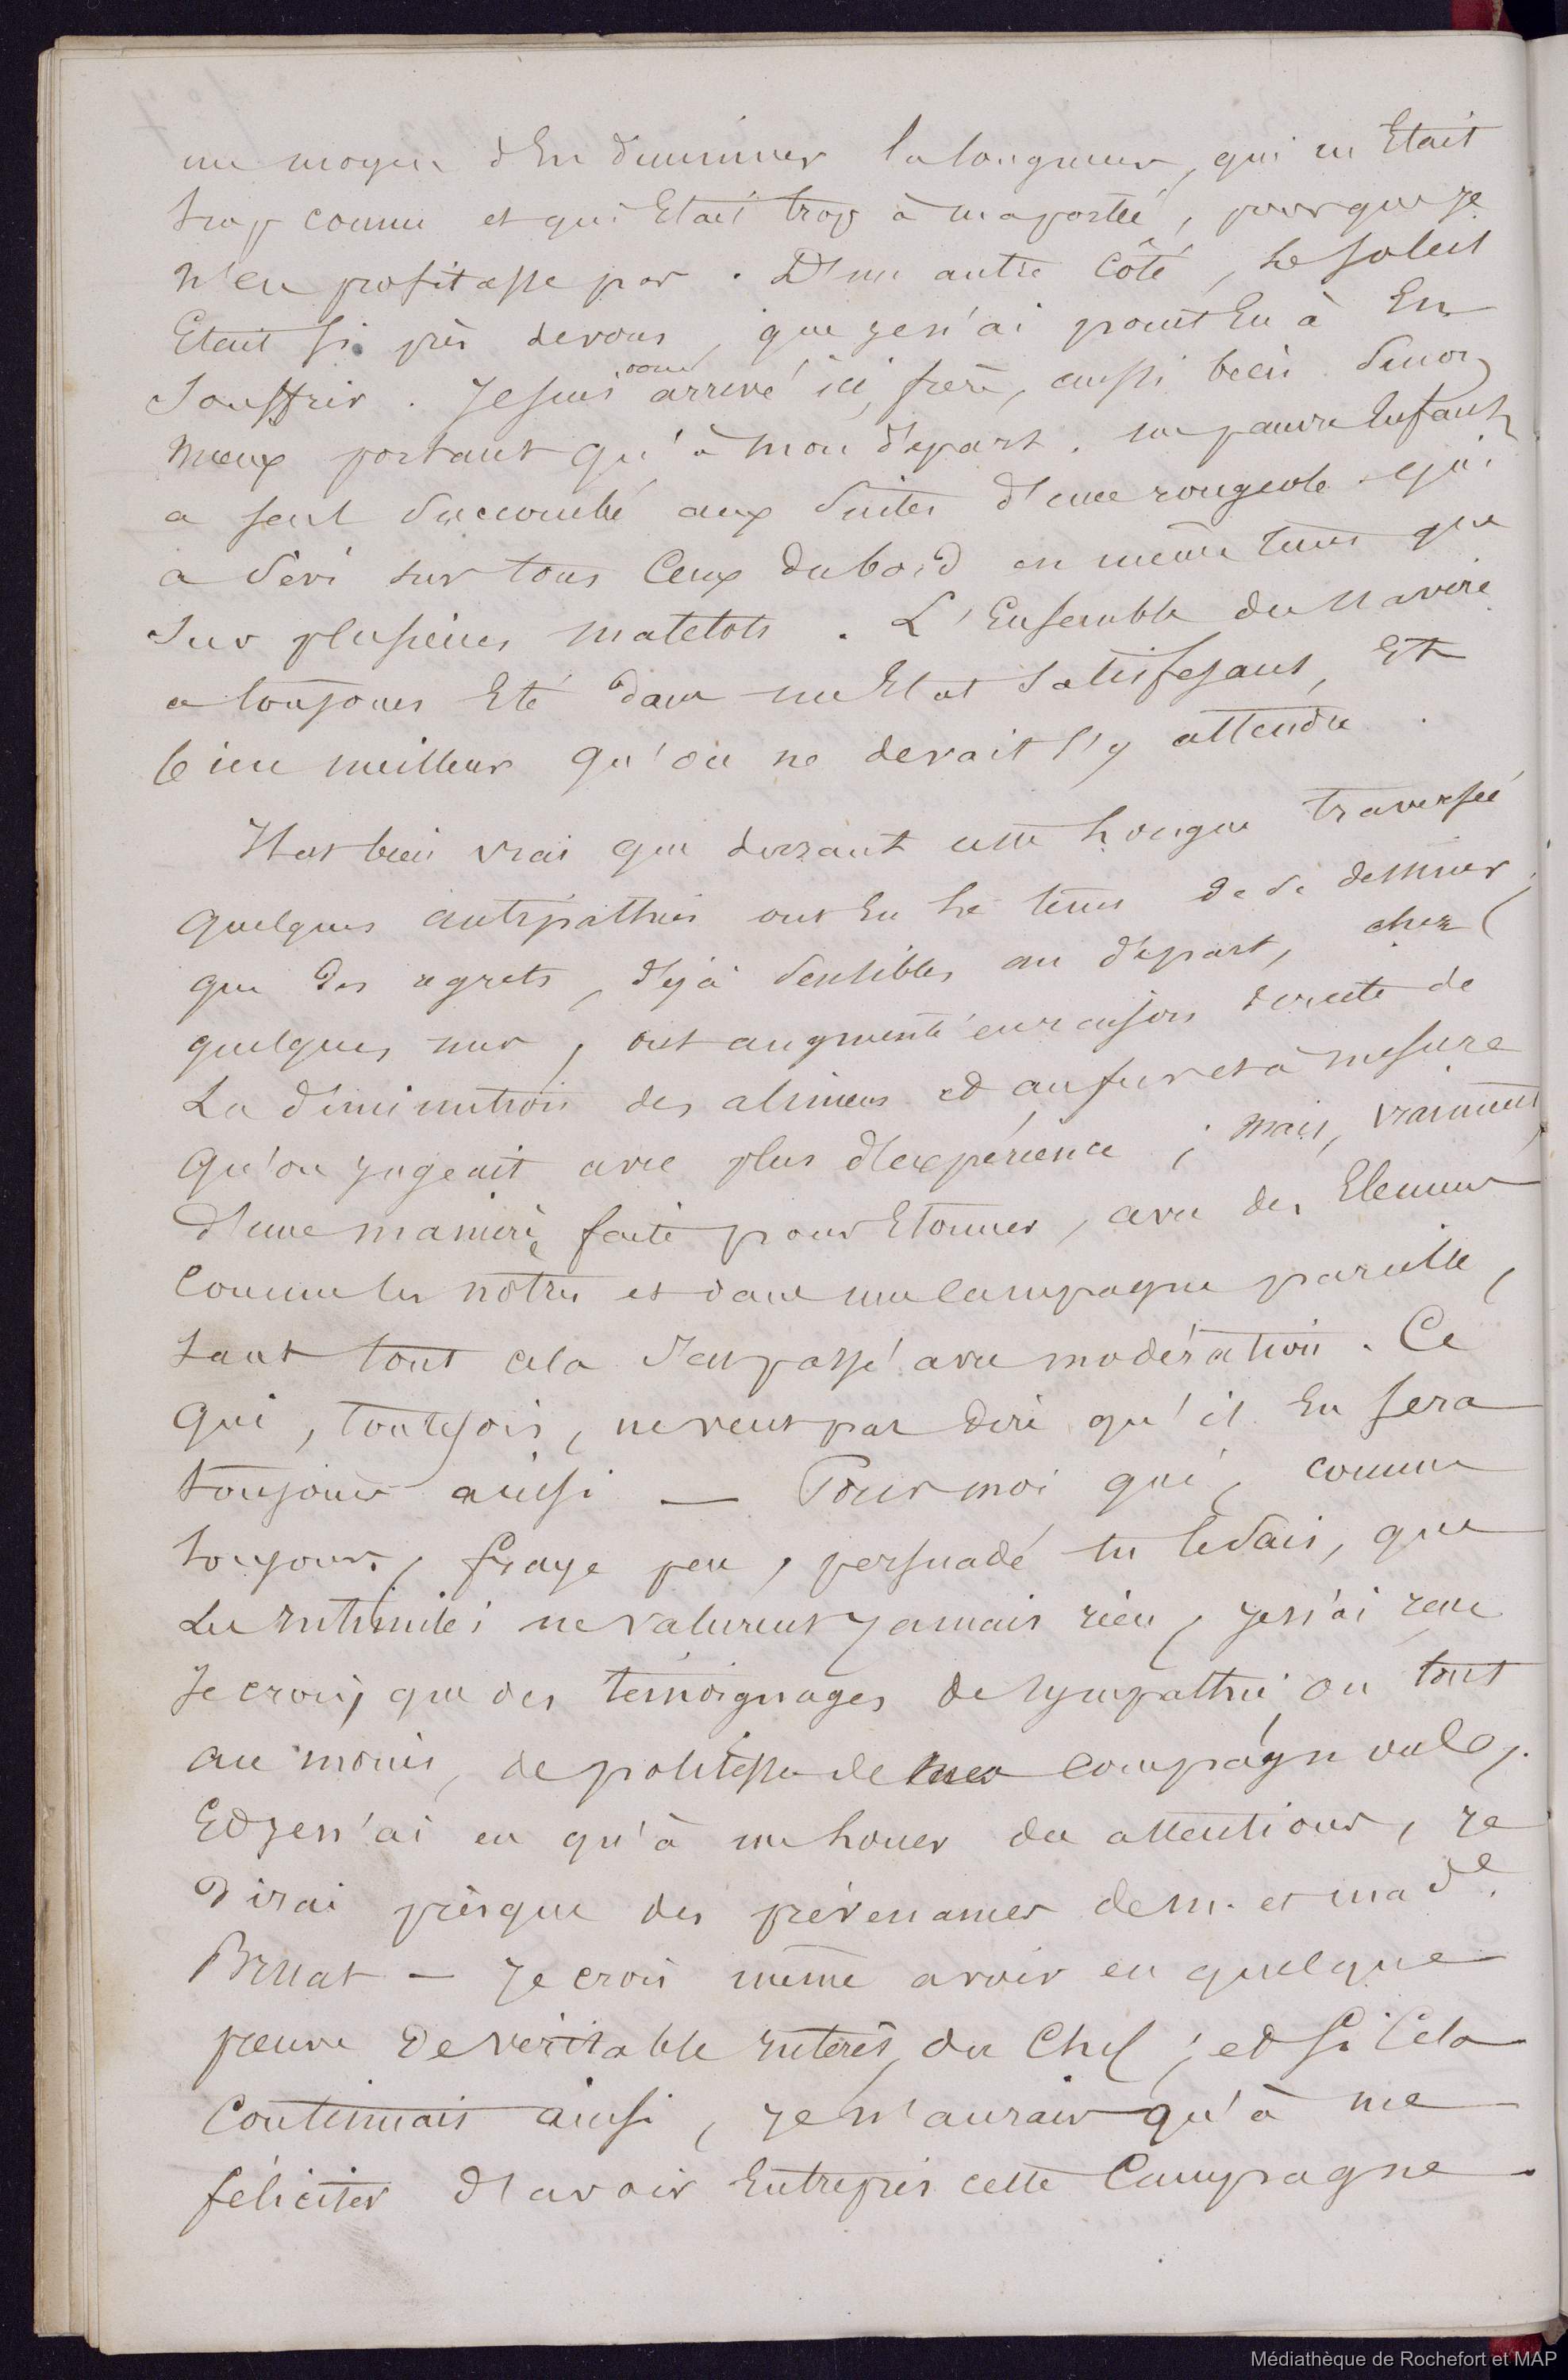 un moyen d'En diminuer la longueur, qui m'Etait
trop connu et qui Etait trop à ma portée, pour que je
n'en profitasse pas. D'un autre côté, le soleil
Etait si près de nous, que je n'ai point Eu à En
souffrir. Je suis donc arrivé ici, frère, aussi bien sinon
mieux portant qu'à mon départ. un pauvre Enfant
a seul succombé aux suites d'une rougeole qui
a sévi sur tous Ceux du bord en même tems que
sur plusieurs matelots. L'Ensemble du Navire
a toujours Eté dans un Etat satisfesant, Et
bien meilleur qu'on ne devait s'y attendre.
Il est bien vrai que durant cette longue traversée
quelques antipathies ont Eu le tems de se dessiner,
que des regrets, déjà sensibles au départ, chez
quelques uns, ont augmenté en raison directe de
la diminution des alimens et au fur et à mesure
qu'on jugeait avec plus d'expérience; mais, vraiment
d'une manière faite pour Etonner, avec des Elemens
comme les nôtres et dans une Campagne pareille,
tant tout cela s'est passé avec modération. Ce
qui, toutefois, ne veut pas dire qu'il En sera
toujours ainsi — Pour moi qui, comme
toujours, fraye peu, persuadé tu le sais, que
les intimités ne valurent jamais rien, je n'ai reçu
je crois, que des témoignages de sympathie, ou tout
au moins, de politesse de mes compagnons.
Et je n'ai eu qu'à me louer des attentions, je
dirai presque des prévenances de m. et made
Bruat — je crois même avoir eu quelque
preuve de véritable intérêt du Chef; et si Cela
Continuait ainsi, je n'aurais qu'à me
féliciter d'avoir Entrepris cette Campagne.
Médiathèque de Rochefort et MAP